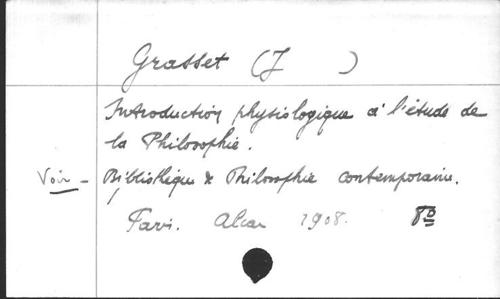 Grasset (J )
Introduction physiologique à l'étude de
la Philosophie.
Voir - Bibliothèque de Philosophie contemporaine.
Paris. Alcan 1908. 8°